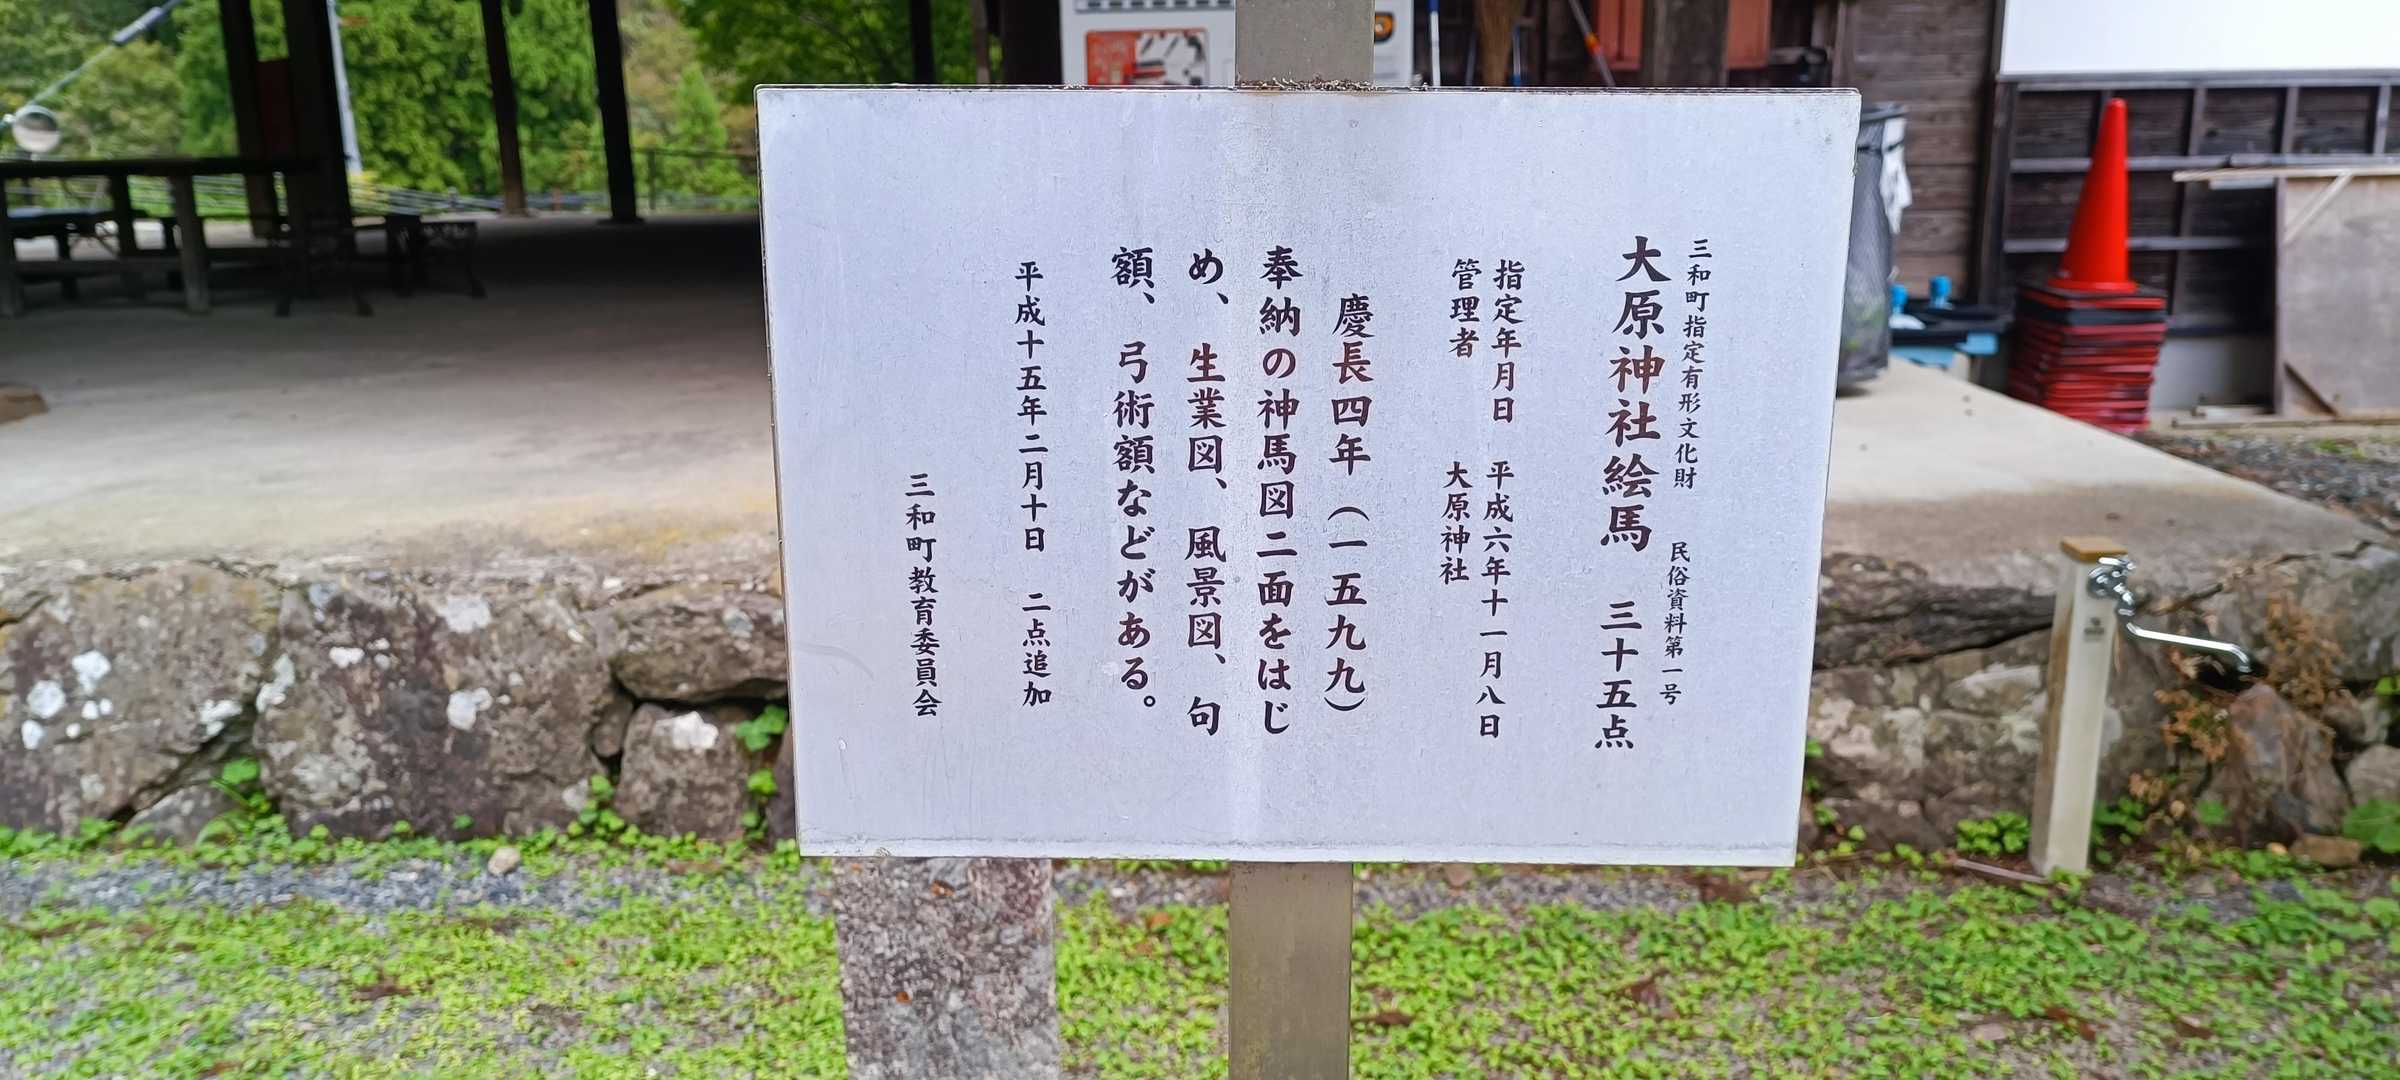 三和町指定有形文化財　民俗資料第一号
大原神社絵馬　三十五点
指定年月日　平成六年十一月八日
管理者　大原神社
慶長四年（一五九九）
奉納の神馬図二面をはじ
め、生業図、風景図、句
額、弓術額などがある。
平成十五年二月十日　二点追加
三和町教育委員会